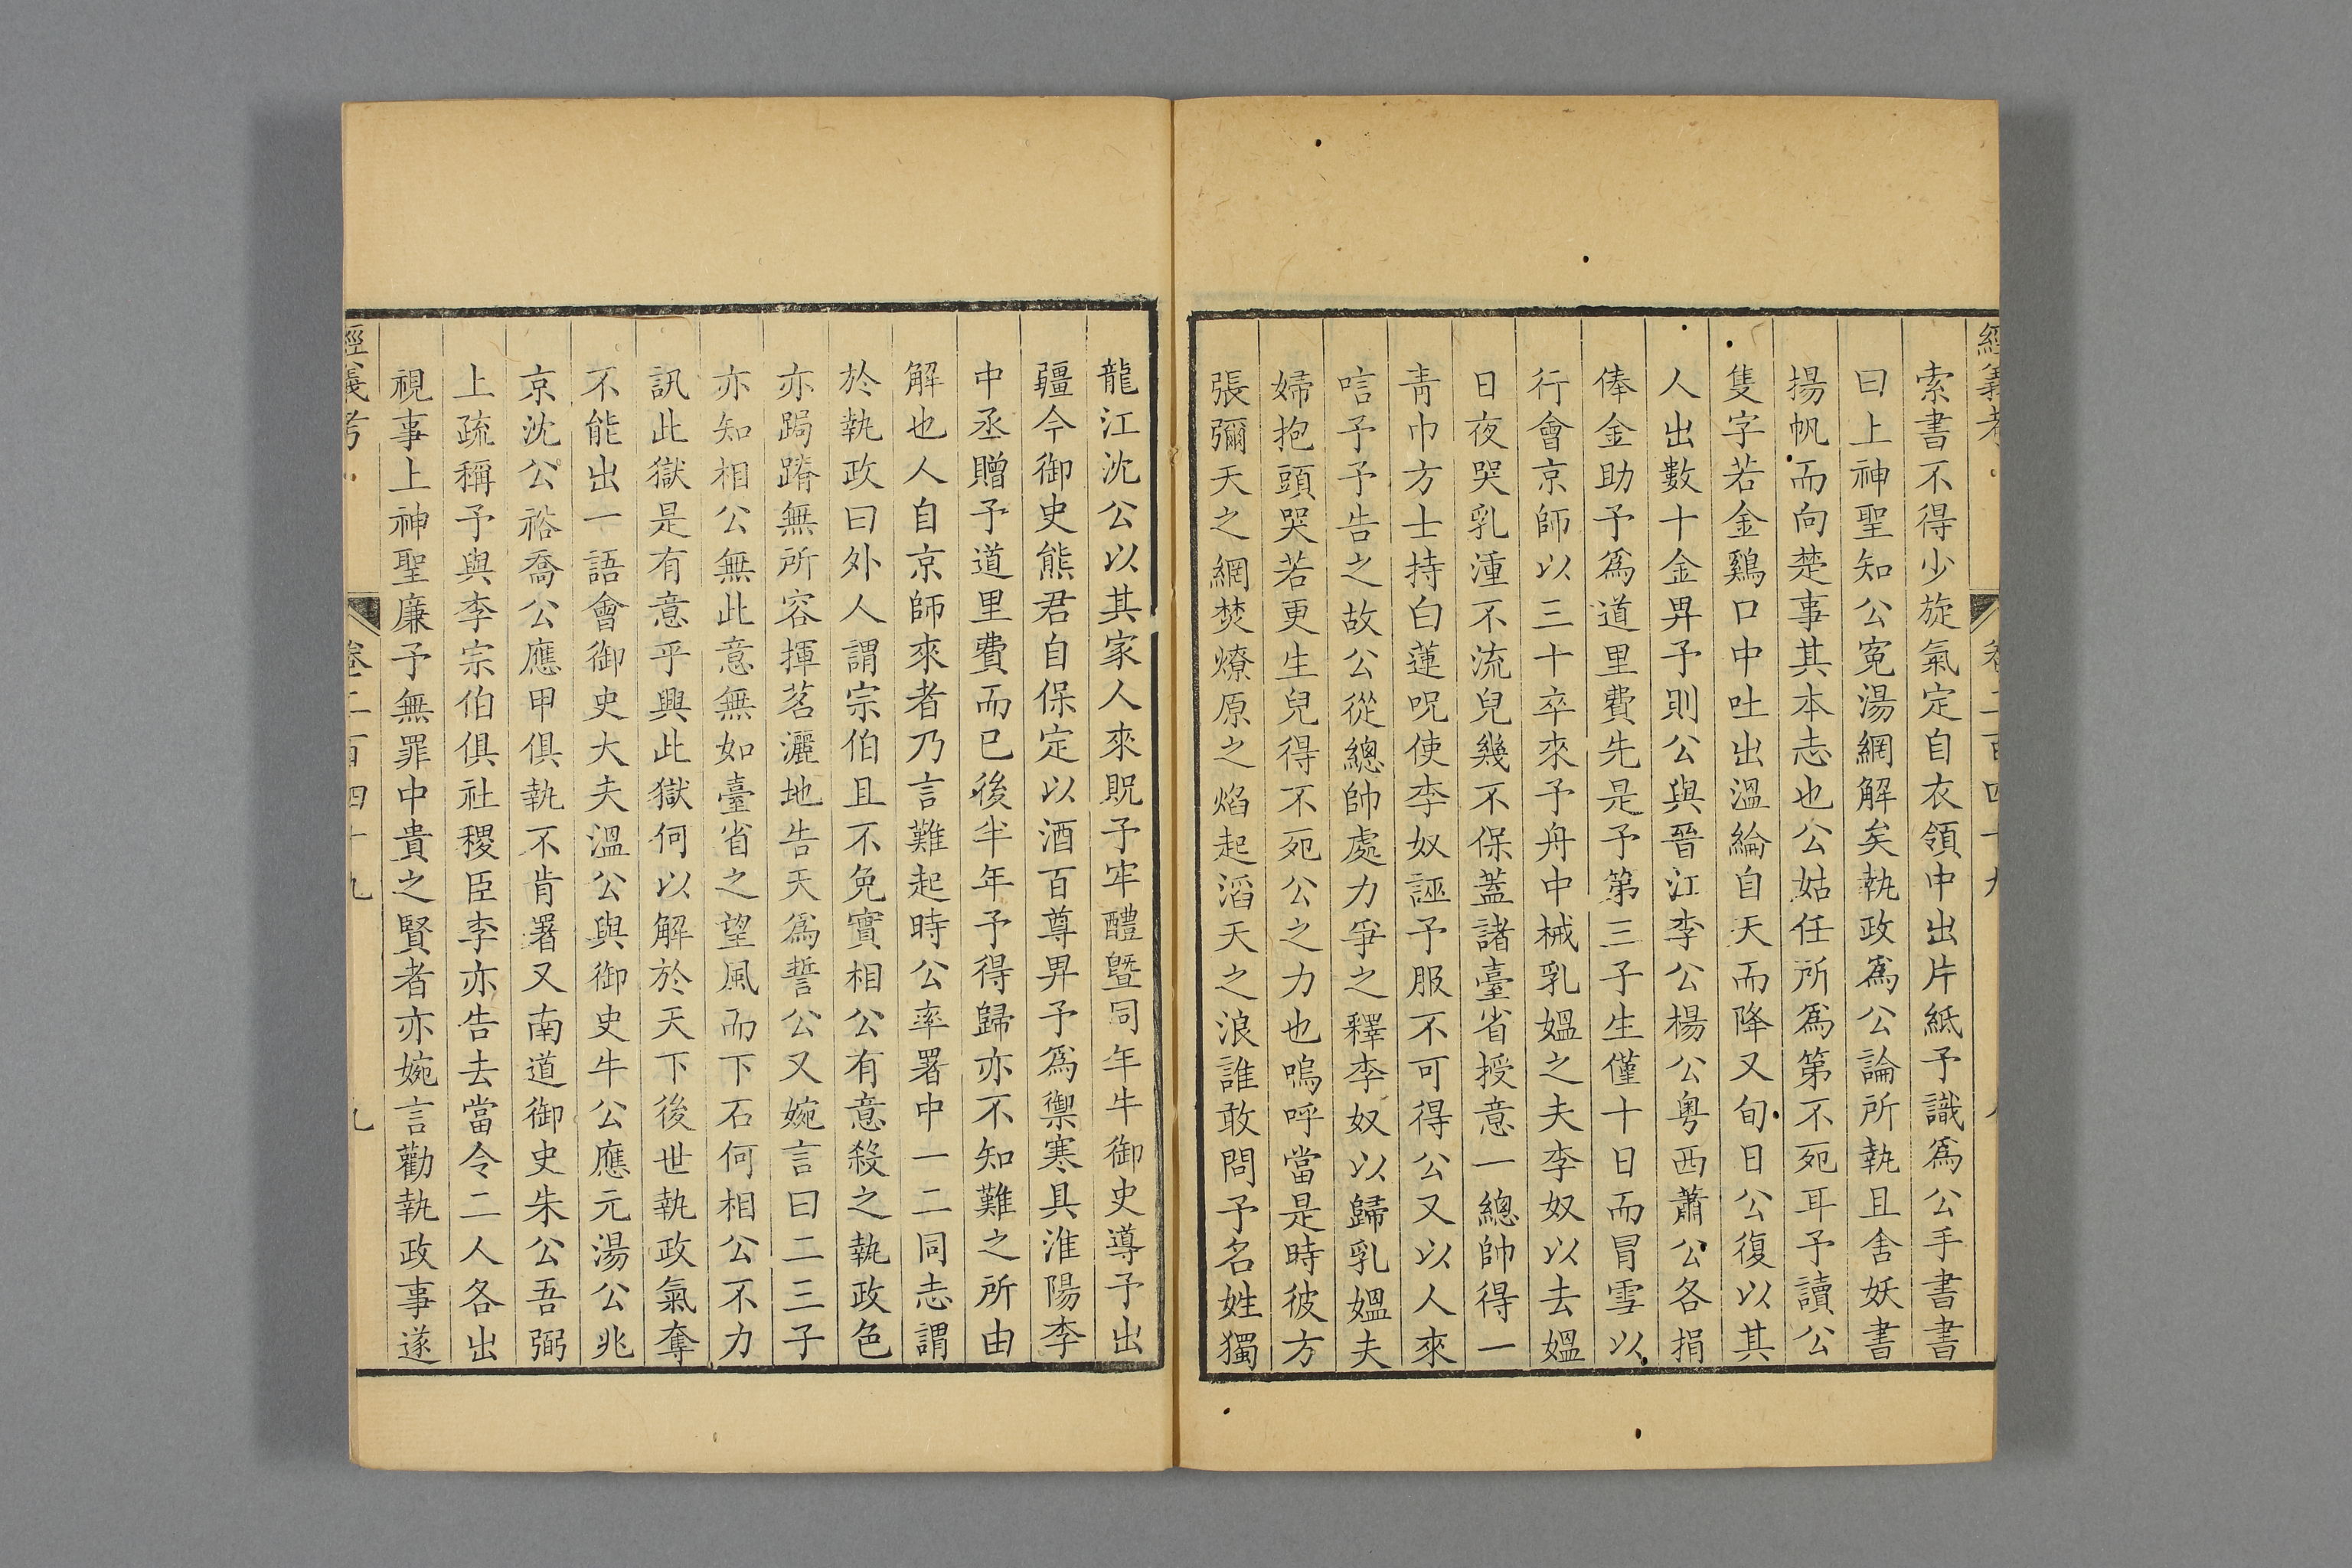 經義考
卷二百四十九
八
索書不得少旋氣定自衣領中出片紙予識爲公手書書
曰上神聖知公冤湯網解矣執政爲公論所執且舍妖書
揚帆而向楚事其本志也公姑任所爲第不死耳予讀公
隻字若金鷄口中吐出溫綸自天而降又旬日公復以其
人出數十金畀予則公與晉江李公楊公粤西蕭公各捐
俸金助予爲道里費先是予第三子生僅十日而冒雪以
行會京師以三十卒來予舟中械乳媼之夫李奴以去媼
日夜哭乳湩不流兒幾不保蓋諸臺省授意一總帥得一
靑巾方士持白蓮呪使李奴誣予服不可得公又以人來
唁予予告之故公從總帥處力爭之釋李奴以歸乳媼夫
婦抱頭哭若更生兒得不死公之力也嗚呼當是時彼方
張彌天之網焚燎原之焰起滔天之浪誰敢問予名姓獨
龍江沈公以其家人來貺予牢醴暨同年牛御史導予出
疆今御史熊君自保定以酒百尊畀予爲禦寒具淮陽李
中丞贈予道里費而已後半年予得歸亦不知難之所由
解也人自京師來者乃言難起時公率署中一二同志謂
於執政曰外人謂宗伯且不免實相公有意殺之執政色
亦跼蹐無所容揮茗灑地告天爲誓公又婉言曰二三子
亦知相公無此意無如臺省之望風而下石何相公不力
訊此獄是有意乎興此獄何以解於天下後世執政氣奪
不能出一語會御史大夫溫公與御史牛公應元湯公兆
京沈公裕喬公應甲俱執不肯署又南道御史朱公吾弼
上疏稱予與李宗伯俱社稷臣李亦告去當令二人各出
視事上神聖廉予無罪中貴之賢者亦婉言勸執政事遂
經義考
卷二百四十九
九